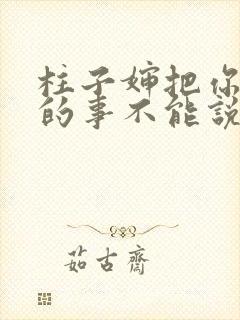 柱子婶把你
的事不能說
茹古齋